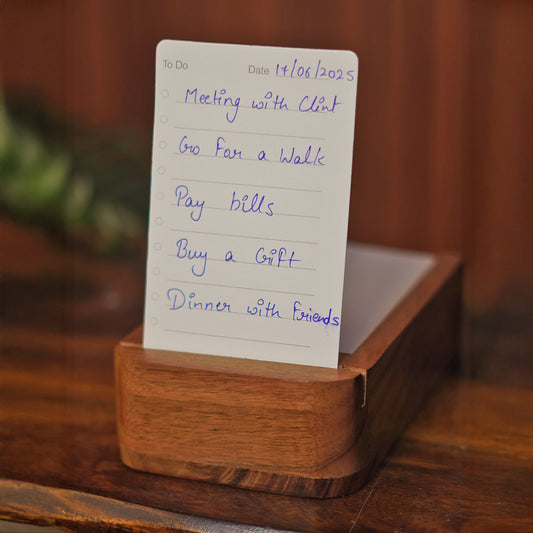 To Do Date 17/06/2025
Meeting with Clint
Go For a Walk
Pay bills
Buy a Gift
Dinner with Friends